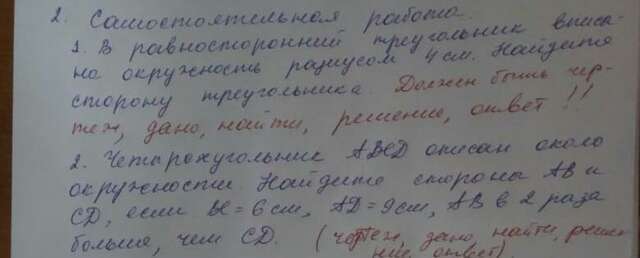 2. Самостоятельная работа.
1. В равносторонний треугольник вписа-
на окружность радиусом 4 см. Найдите
сторону треугольника. Должен быть чер-
теж, дано, найти, решение, ответ!!
2. Четырехугольник ABCD описан около
окружности. Найдите стороны AB и
CD, если BC = 6 см, AD = 9 см, AB в 2 раза
больше, чем CD. (чертеж, дано, найти, реше-
ние, ответ).